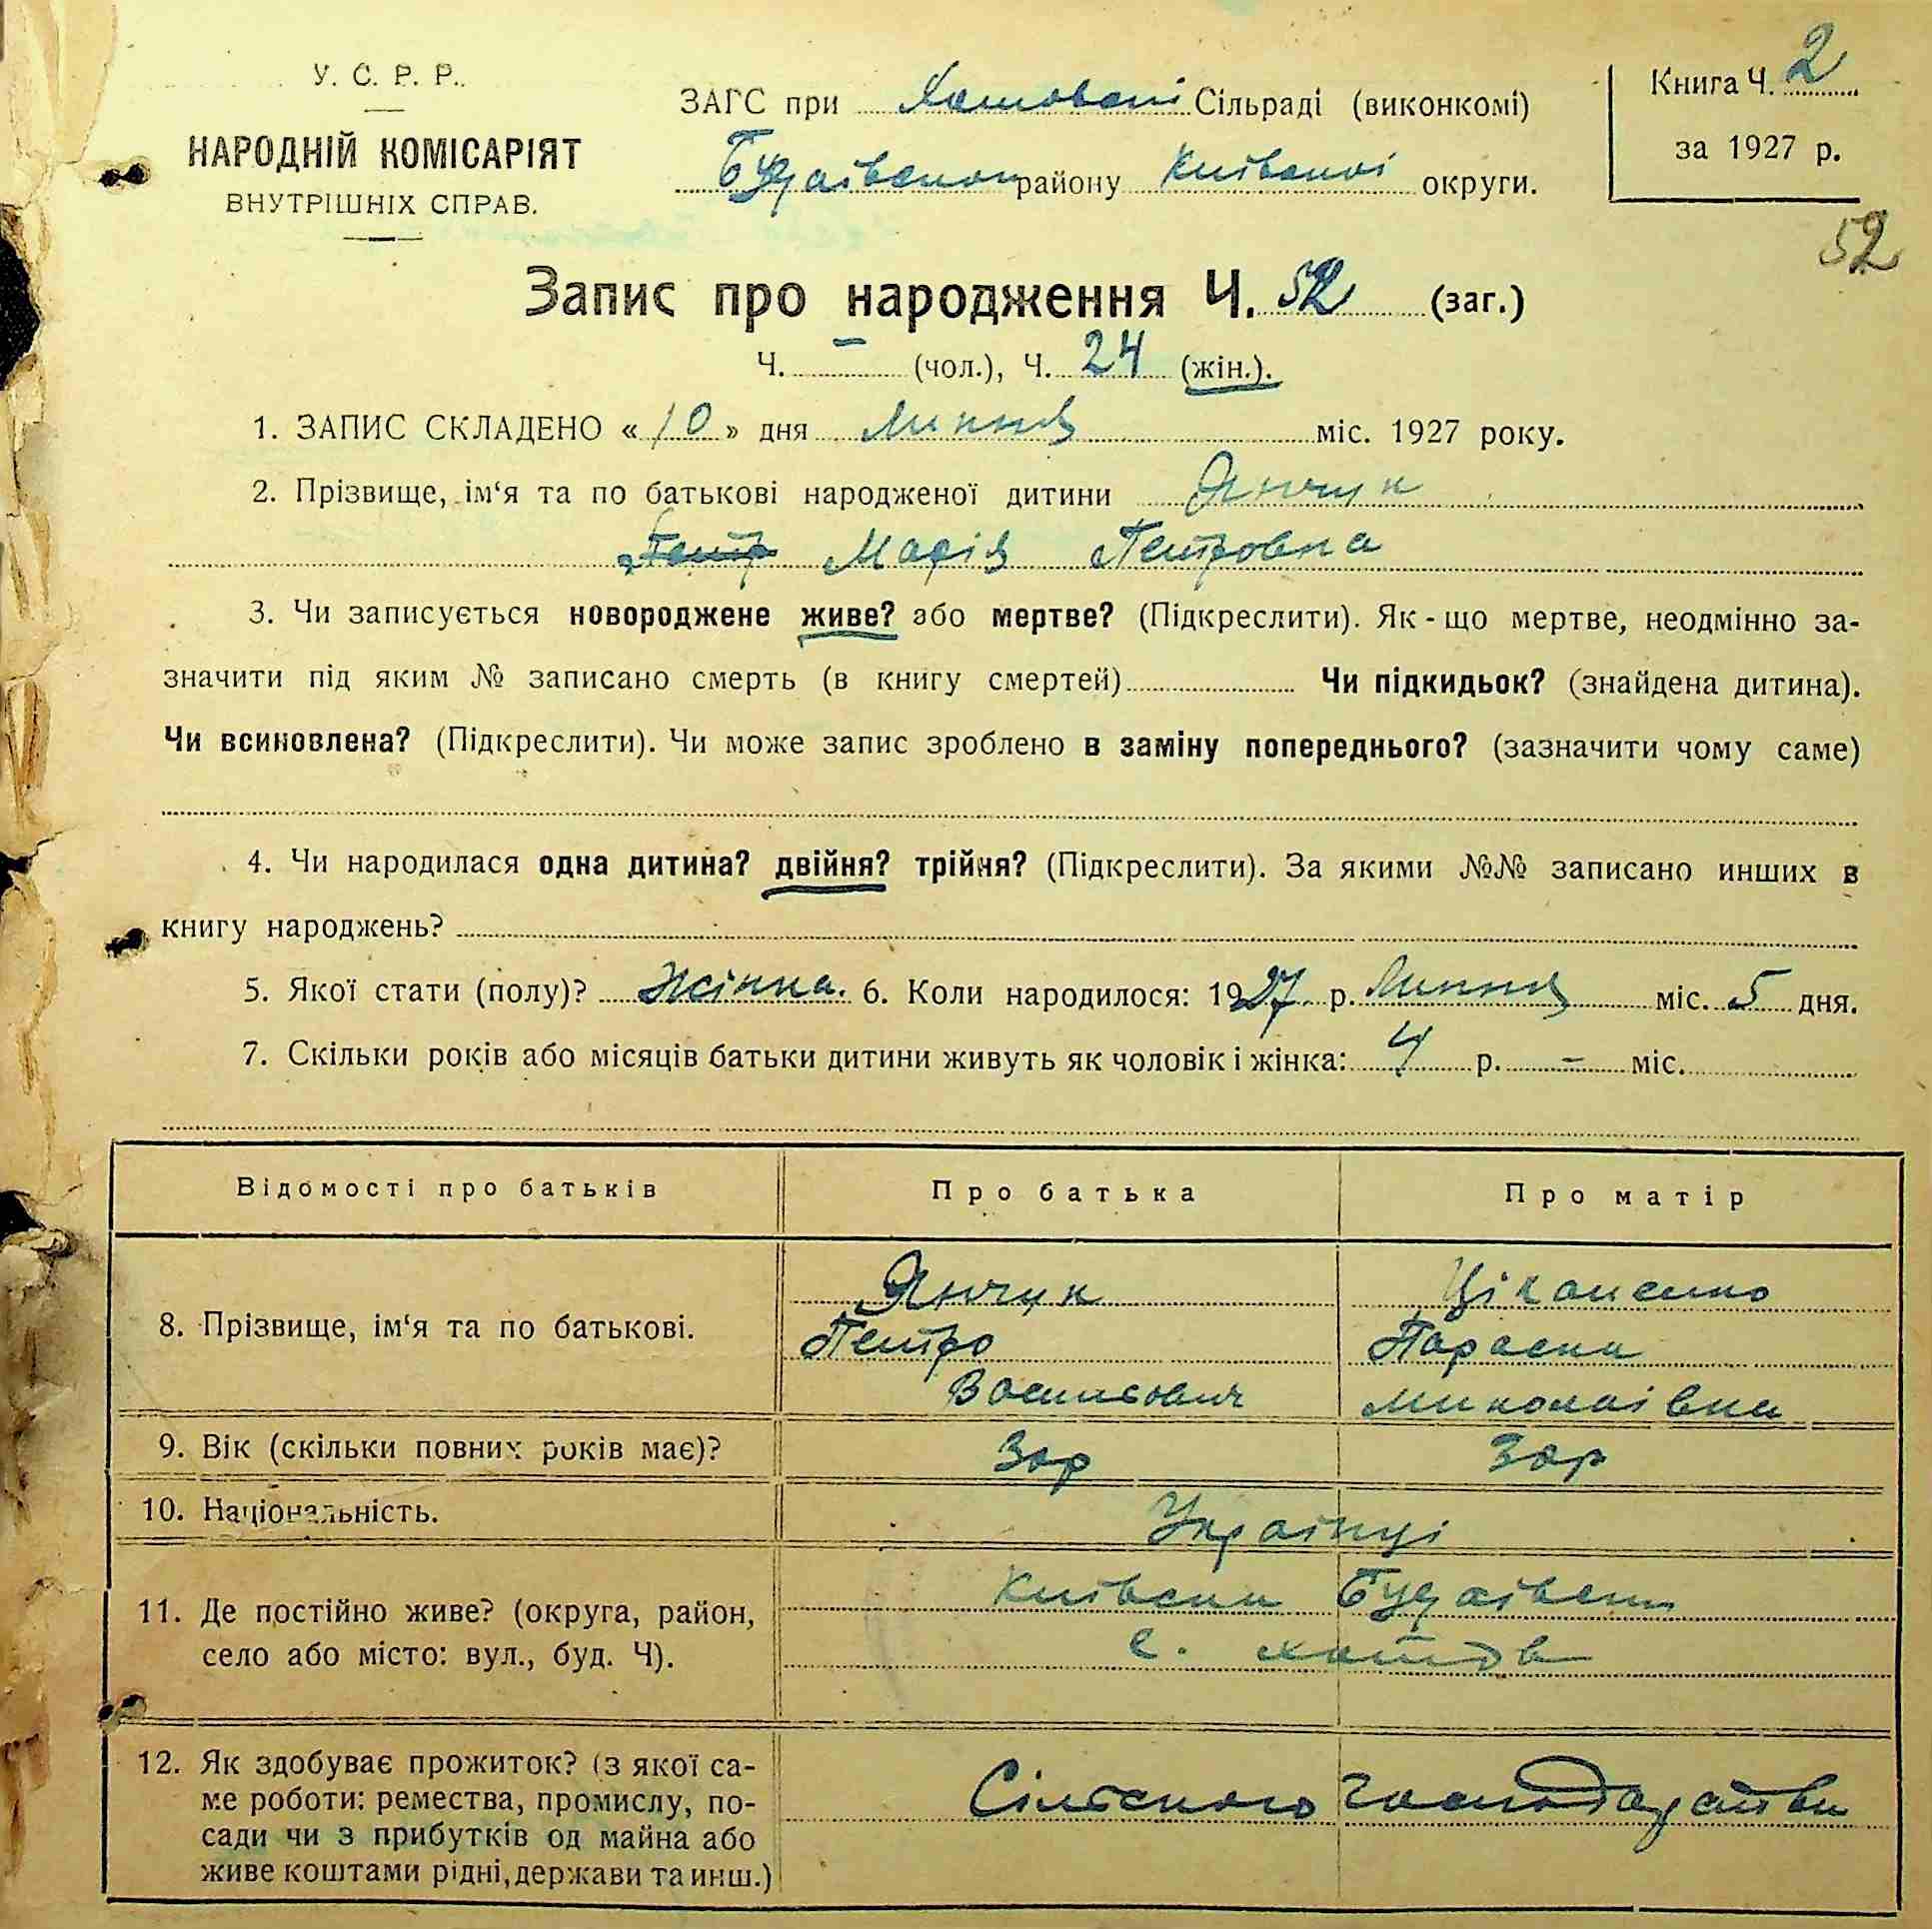 У. С. Р. Р.
НАРОДНІЙ КОМІСАРІЯТ
ВНУТРІШНІХ СПРАВ.
ЗАГС при Хотовскі Сільраді (виконкомі)
Будаівського району Київскої округи.
Книга Ч. 2
за 1927 р.
52
Запис про народження Ч. 52 (заг.)
Ч. – (чол.), Ч. 24 (жін.).
1. ЗАПИС СКЛАДЕНО «10» дня Липня міс. 1927 року.
2. Прізвище, ім‘я та по батькові народженої дитини Янчук
Петр Марія Петровна
3. Чи записується новороджене живе? або мертве? (Підкреслити). Як-що мертве, неодмінно за-
значити під яким № записано смерть (в книгу смертей) Чи підкидьок? (знайдена дитина).
Чи всиновлена? (Підкреслити). Чи може запис зроблено в заміну попереднього? (зазначити чому саме)
4. Чи народилася одна дитина? двійня? трійня? (Підкреслити). За якими №№ записано инших в
книгу народжень?
5. Якої стати (полу)? Жінка. 6. Коли народилося: 1927 р. Липня міс. 5 дня.
7. Скільки років або місяців батьки дитини живуть як чоловік і жінка: 4 р. – міс.
Відомості про батьків Про батька Про матір
8. Прізвище, ім‘я та по батькові.
Янчук
Петро
Васильович
Параска
Миколаівна
9. Вік (скільки повних років має)? 30р 30р
10. Національність. Українці
11. Де постійно живе? (округа, район,
село або місто: вул., буд. Ч).
Київска Будаівськ
с. Хотов
12. Як здобуває прожиток? (з якої са-
ме роботи: ремества, промислу, по-
сади чи з прибутків од майна або
живе коштами рідні, держави та инш.)
Сільского господарства